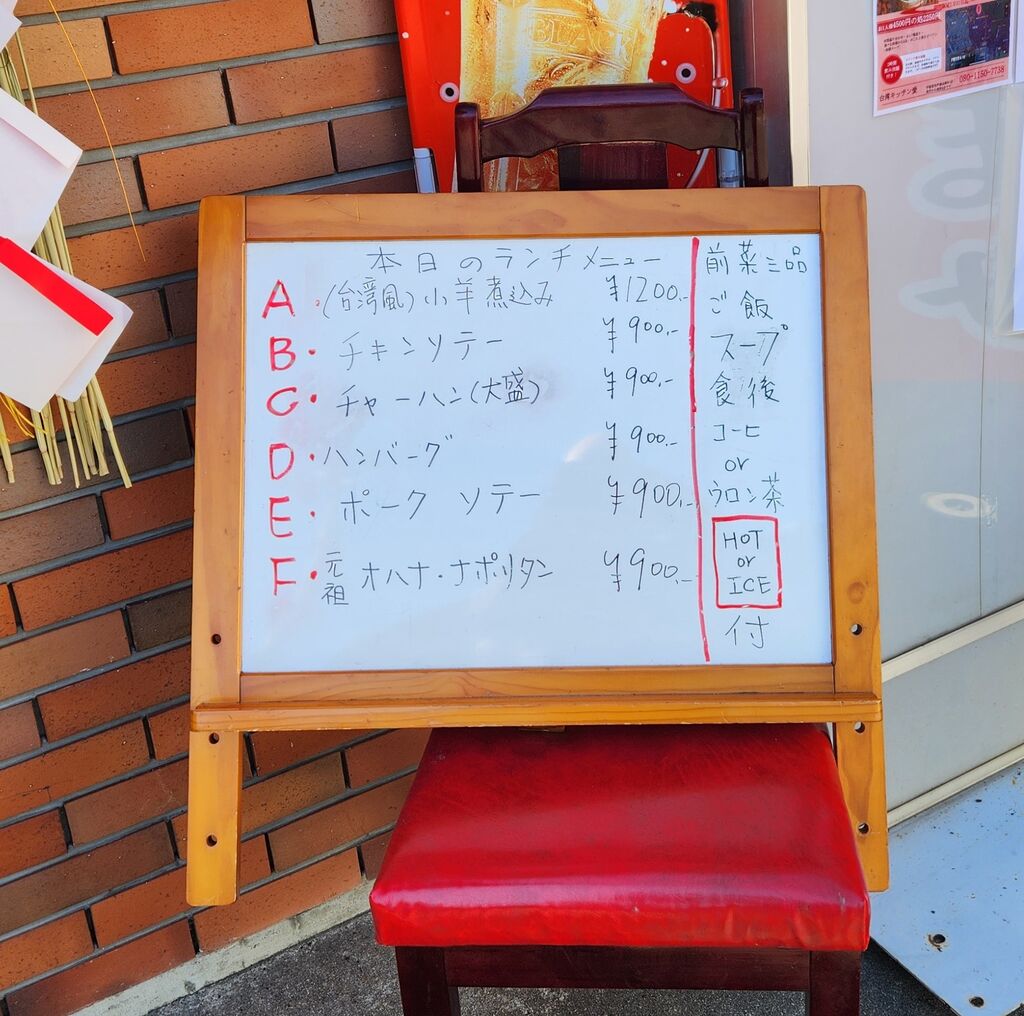 BLACK
本日のランチメニュー
A.(台湾風)小羊煮込み ¥1200.-
B. チキンソテー ¥900.-
C. チャーハン(大盛) ¥900.-
D. ハンバーグ ¥900.-
E. ポーク ソテー ¥900.-
F. 元祖 オハナ・ナポリタン ¥900.-
前菜三品
ご飯
スープ
食後
コーヒ
or
ウロン茶
HOT
or
ICE
付
080-1150-7738
台湾キッチン愛